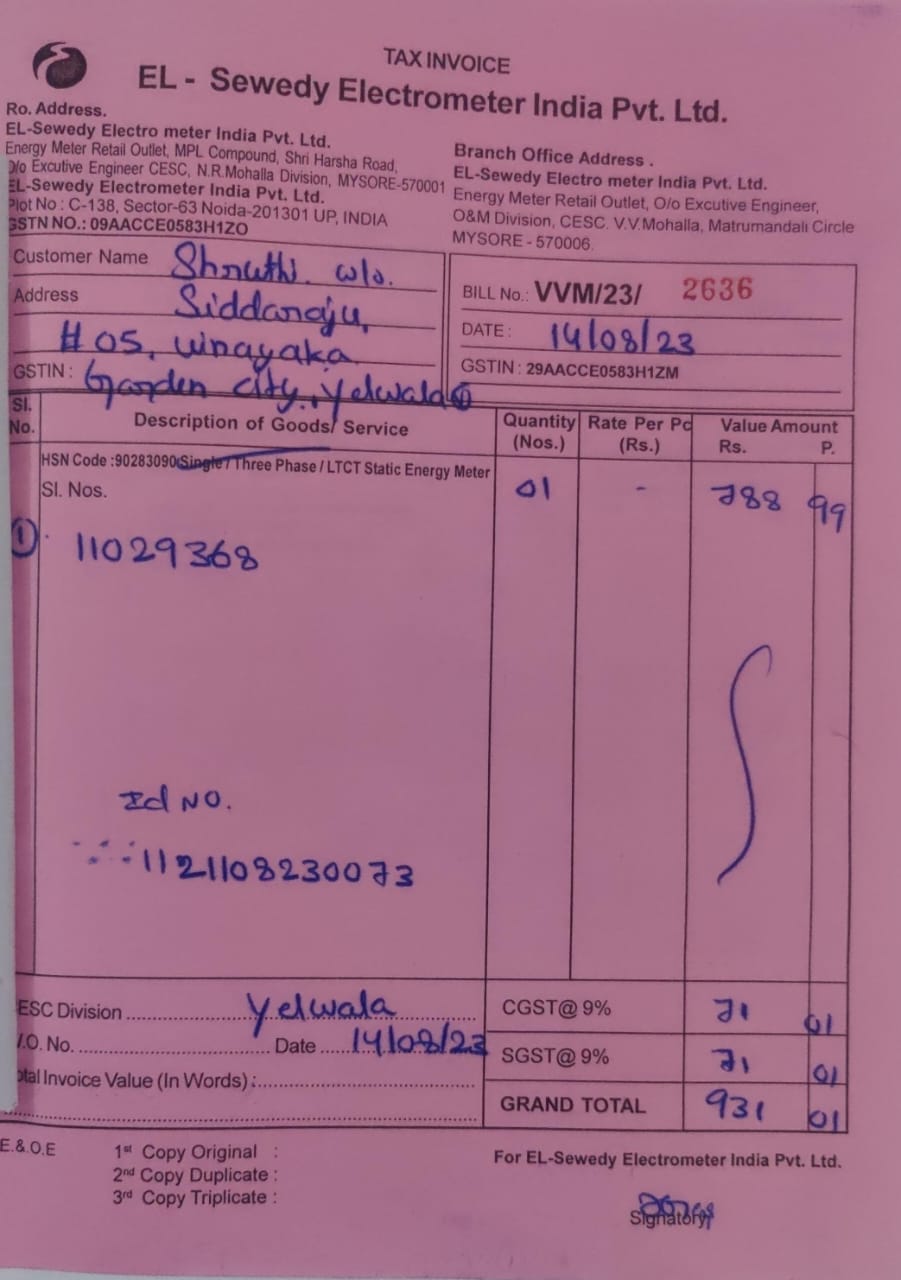 TAX INVOICE
EL - Sewedy Electrometer India Pvt. Ltd.
Ro. Address.
EL-Sewedy Electro meter India Pvt. Ltd.
Energy Meter Retail Outlet, MPL Compound, Shri Harsha Road,
O/o Excutive Engineer CESC, N.R.Mohalla Division, MYSORE-570001
EL-Sewedy Electrometer India Pvt. Ltd.
Plot No : C-138, Sector-63 Noida-201301 UP, INDIA
GSTN NO.: 09AACCE0583H1ZO
Branch Office Address .
EL-Sewedy Electro meter India Pvt. Ltd.
Energy Meter Retail Outlet, O/o Excutive Engineer,
O&M Division, CESC. V.V.Mohalla, Matrumandali Circle
MYSORE - 570006.
Customer Name Shruthi. w/o.
Address Siddaraju,
# 05, Vinayaka
GSTIN : Garden city, Yelwala
BILL No.: VVM/23/ 2636
DATE : 14/08/23
GSTIN : 29AACCE0583H1ZM
Sl. No. Description of Goods/ Service Quantity (Nos.) Rate Per Pc (Rs.) Value Amount Rs. P.
HSN Code :90283090 Single / Three Phase / LTCT Static Energy Meter
Sl. Nos. 01 - 788 99
① 11029368
Id NO.
1121108230073
ESC Division Yelwala CGST@ 9% 71 01
.O. No. Date 14/08/23 SGST@ 9% 71 01
otal Invoice Value (In Words) :
GRAND TOTAL 931 01
E.&.O.E
1st Copy Original :
2nd Copy Duplicate :
3rd Copy Triplicate :
For EL-Sewedy Electrometer India Pvt. Ltd.
Signatory